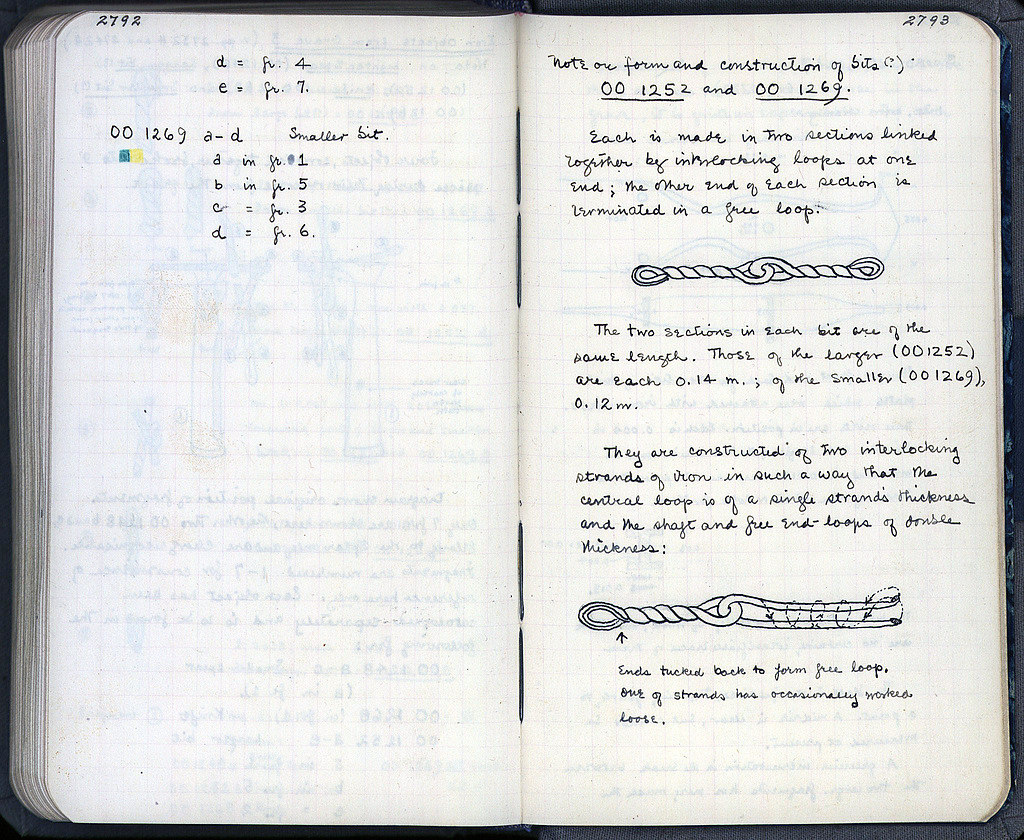 2792
d = fr. 4
e = fr. 7.
00 1269 a-d Smaller bit.
a in fr. 1
b in fr. 5
c = fr. 3
d = fr. 6.
2793
Note on form and construction of bits (?)
00 1252 and 00 1269.
Each is made in two sections linked
together by interlocking loops at one
end; the other end of each section is
terminated in a free loop:
The two sections in each bit are of the
same length. Those of the larger (00 1252)
are each 0.14 m.; of the smaller (00 1269),
0.12 m.
They are constructed of two interlocking
strands of iron in such a way that the
central loop is of a single strand's thickness
and the shaft and free end-loops of double
thickness:
Ends tucked back to form free loop.
One of strands has occasionally worked
loose.